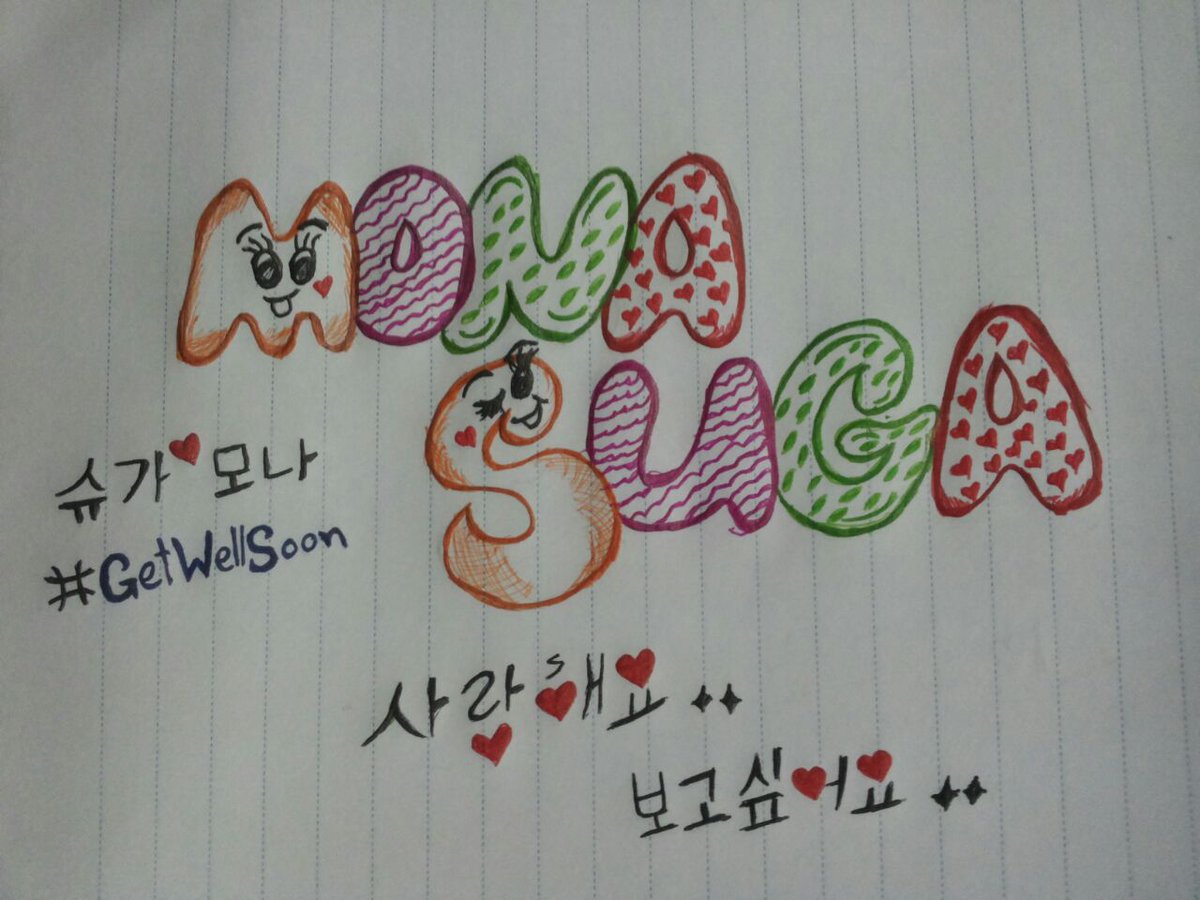 MONA
SUGA
슈가♥모나
#GetWellSoon
사랑해요..
보고싶어요..